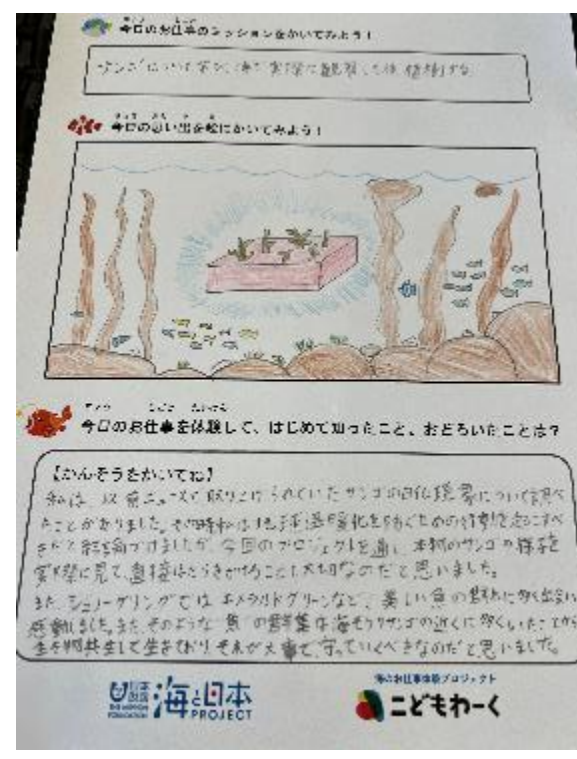 今日のお仕事のミッションをかいてみよう!
サンゴについて学び、海で実際に観察した後、植樹する
きょう おも で え
今日の思い出を絵にかいてみよう!
きょう しごと たいけん
今日のお仕事を体験して、はじめて知ったこと、おどろいたことは?
【かんそうをかいてね】
私は、以前ニュースで取り上げられていたサンゴの白化現象について調べ
たことがありました。その時私は地球温暖化を防ぐための行動をすべ
きだと結論づけましたが、今回のプロジェクトを通し、本物のサンゴの様子を
実際に見て、直接はたらきかけることも大切なのだと思いました。
また、シュノーケリングではエメラルドグリーンなど、美しい魚の群れに多く出会い
感動しました。また、そのような魚の群集や海そうがサンゴの近くに多くいたことから
生き物は共生して生きており、それが大事で、守っていくべきなのだと思いました。
日本財団
THE NIPPON FOUNDATION
海と日本
PROJECT
海のお仕事体験プロジェクト
こどもわーく